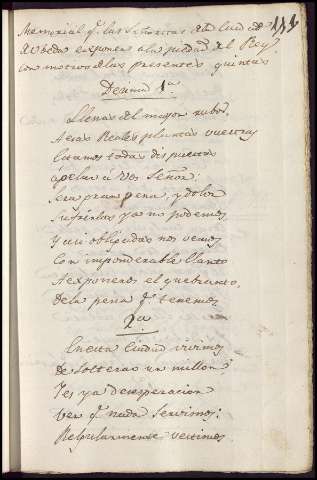 114
Memorial q.e las Señoritas de la Ciudad
de Vbeda exponen a la piedad del Rey
con motivo de las presentes quintas
Dezima 1.a
Llenas del mayor rubor,
A esas Reales plantas vuestras
Estamos todas dispuestas
á pelar á Vos Señor:
Sera gran pena, y dolor
Sufrirlas ya no podemos
Y asi obligadas nos vemos
Con imponderable llanto
A exponeros el quebranto,
de la pena q.e tenemos
2.a
En esta Ciudad vivimos
de Solteras un millon
Y es ya desesperacion
ver q.e nada servimos:
Regularmente vestimos